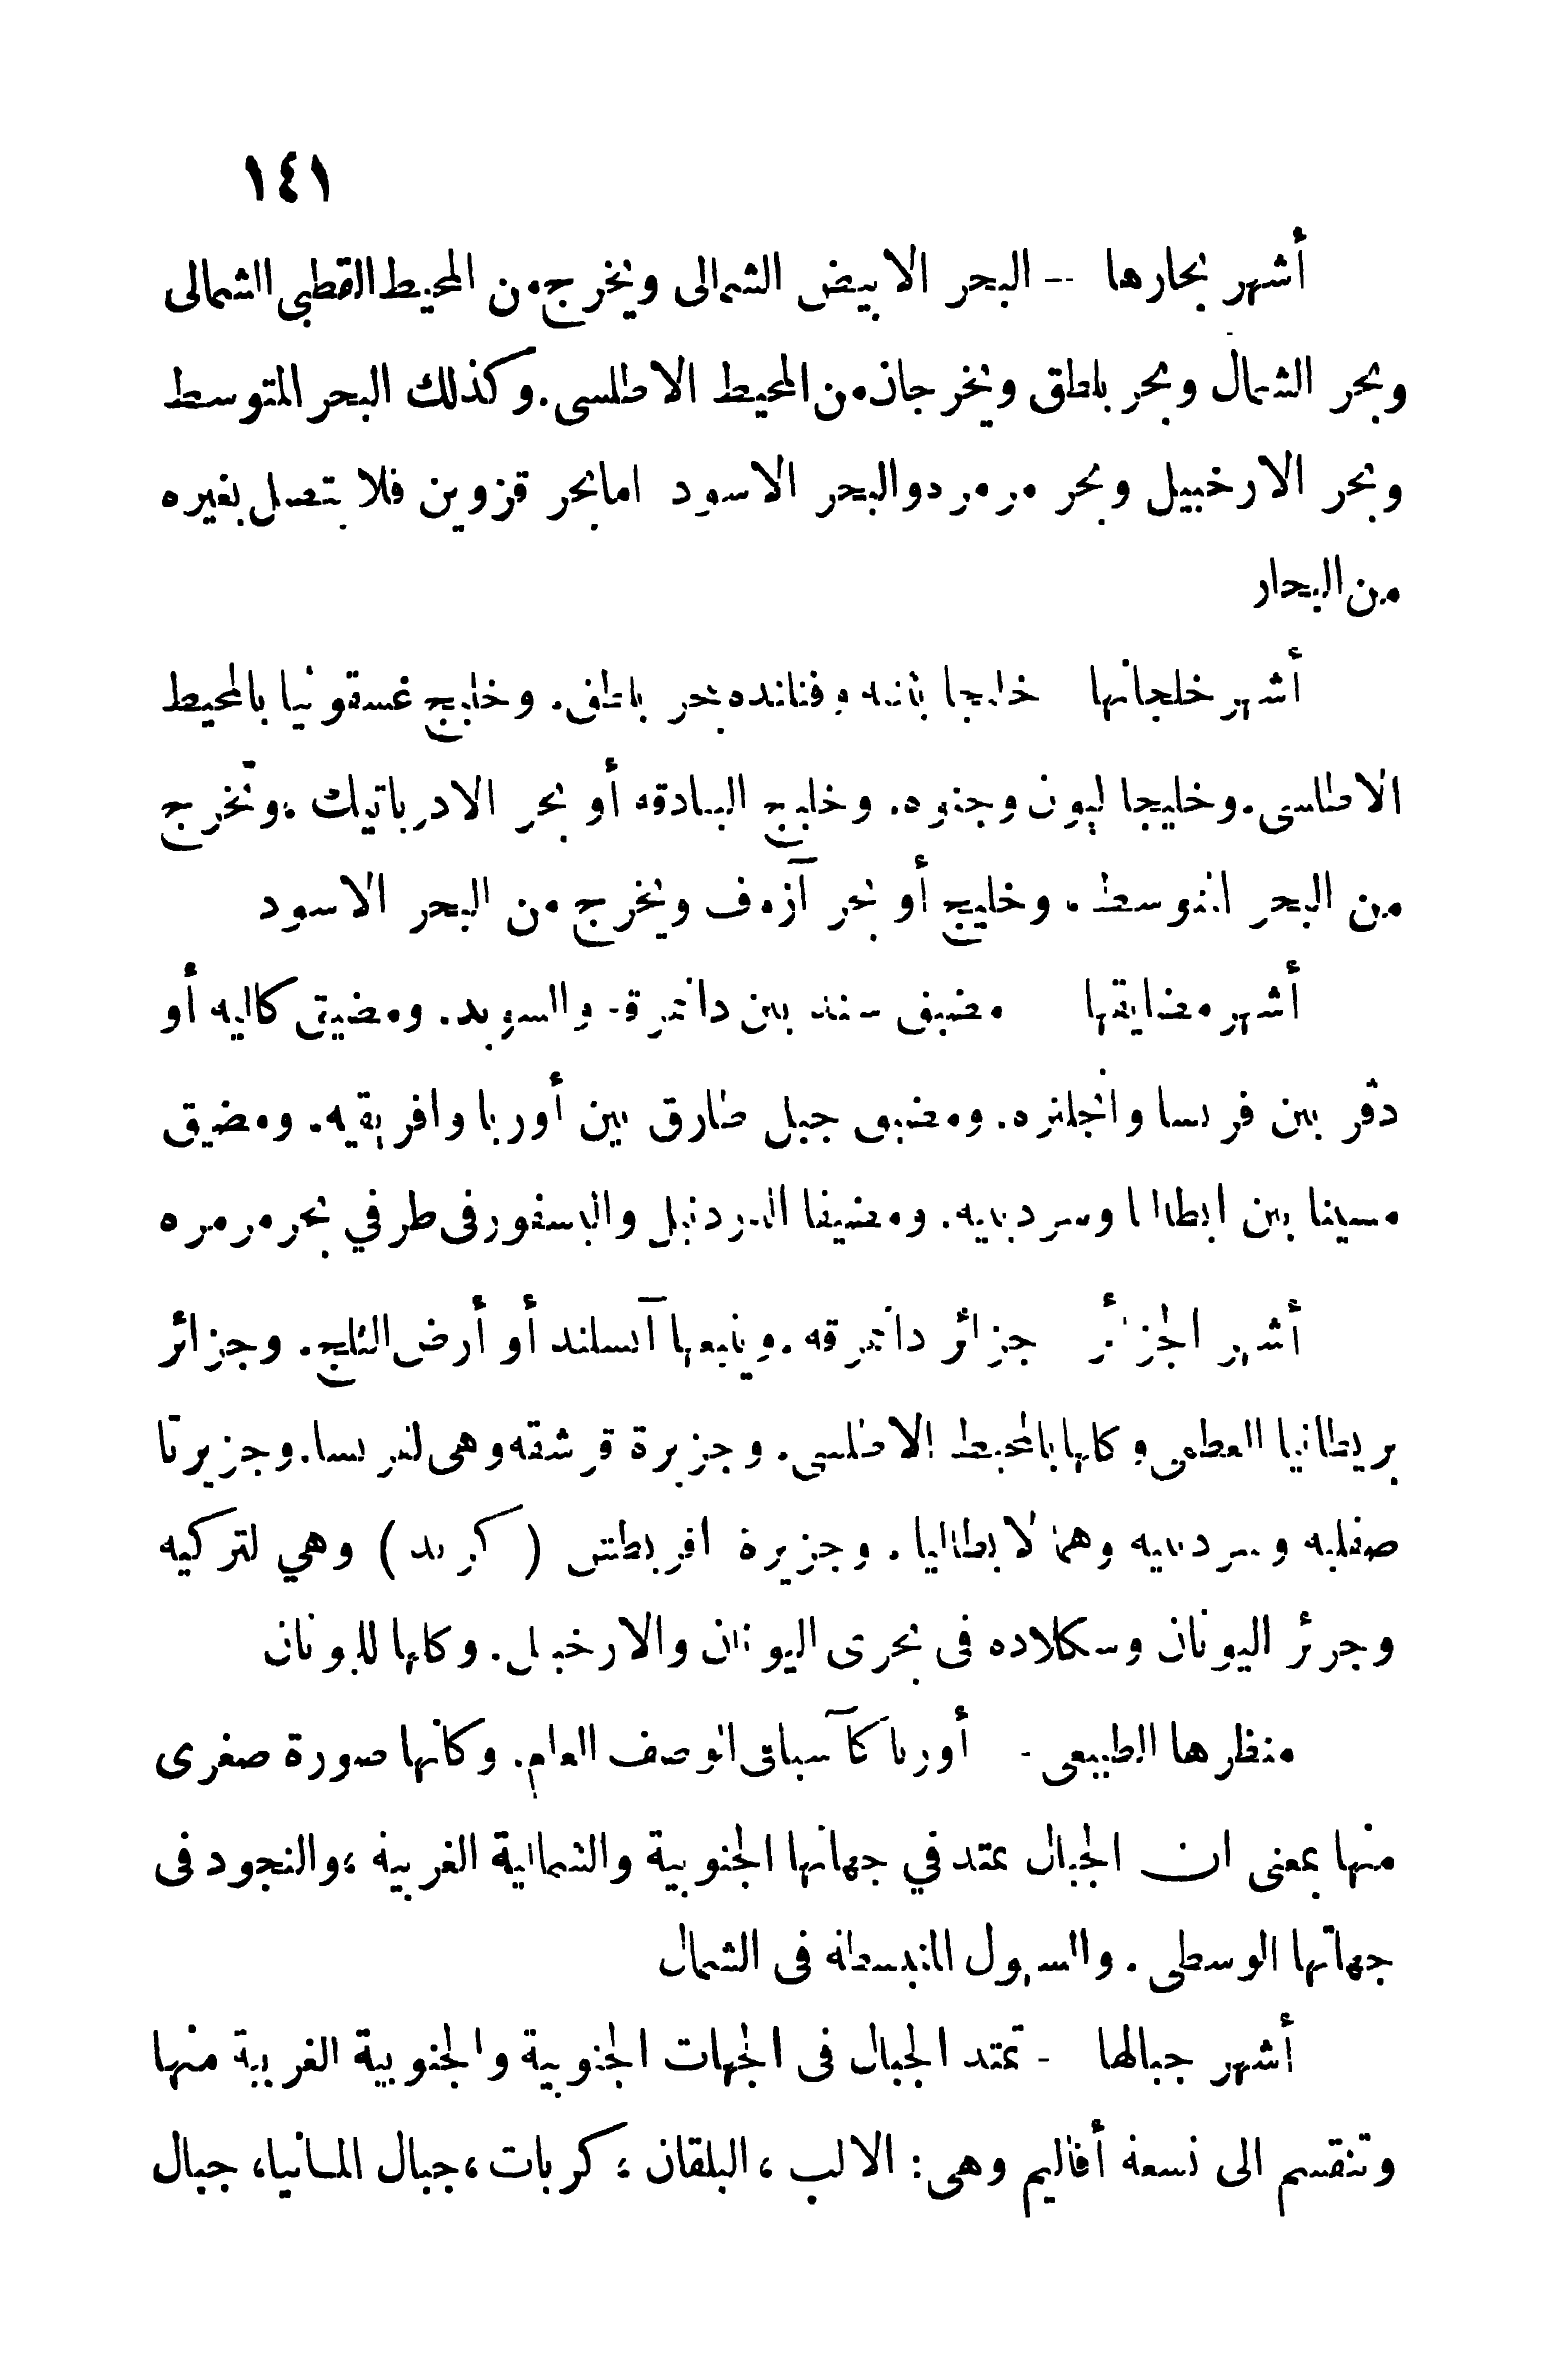 ١٤١
أشهر بحارها -- البحر الابيض الشمالى ويخرج من المحيط القطبي الشمالى
وبحر الشمال وبحر بلطق ويخرجان من المحيط الاطلسى. وكذلك البحر المتوسط
وبحر الارخبيل وبحر مرمره والبحر الاسود اما بحر قزوين فلا يتصل بغيره
من البحار
أشهر خلجانها خليجا بثنه وفنلنده ببحر بلطق. وخليج غسقونيا بالمحيط
الاطلسى. وخليجا ليون وجنوه. وخليج البنادقه أو بحر الادرياتيك، وتخرج
من البحر المتوسط، وخليج أو بحر آزوف ويخرج من البحر الاسود
أشهر مضايقها مضيق سند بين دانمرقه والسويد. ومضيق كاليه أو
دڤر بين فرنسا وانجلتره. ومضيق جبل طارق بين أوربا وافريقيه. ومضيق
مسينا بين ايطاليا وسردينيه. ومضيقا الدردنيل والبسفور فى طرفي بحر مرمره
أشهر الجزائر جزائر دانمرقه. ويتبعها آيسلند أو أرض الثلج. وجزائر
بريطانيا العظمى وكلها بالمحيط الاطلسى. وجزيرة قرشقه وهى لفرنسا. وجزيرتا
صقليه وسردينيه وهما لايطاليا. وجزيرة اقريطش ( كريد ) وهي لتركيه
وجزئر اليونان وسكلاده فى بحرى اليونان والارخبيل. وكلها لليونان
منظرها الطبيعى - أوربا كآسيا فى الوصف العام. وكانها صورة صغرى
منها بمعنى ان الجبال تمتد في جهاتها الجنوبية والشمالية الغربية، والنجود فى
جهاتها الوسطى. والسهول المنبسطة فى الشمال
أشهر جبالها - تمتد الجبال فى الجهات الجنوبية والجنوبية الغربية منها
وتنقسم الى تسعة أقاليم وهى: الالب، البلقان، كربات، جبال المانيا، جبال